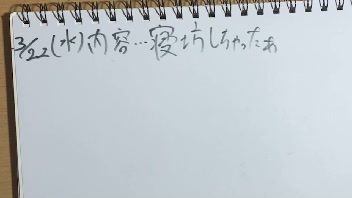 3/22(水)内容…寝坊しちゃったぁ